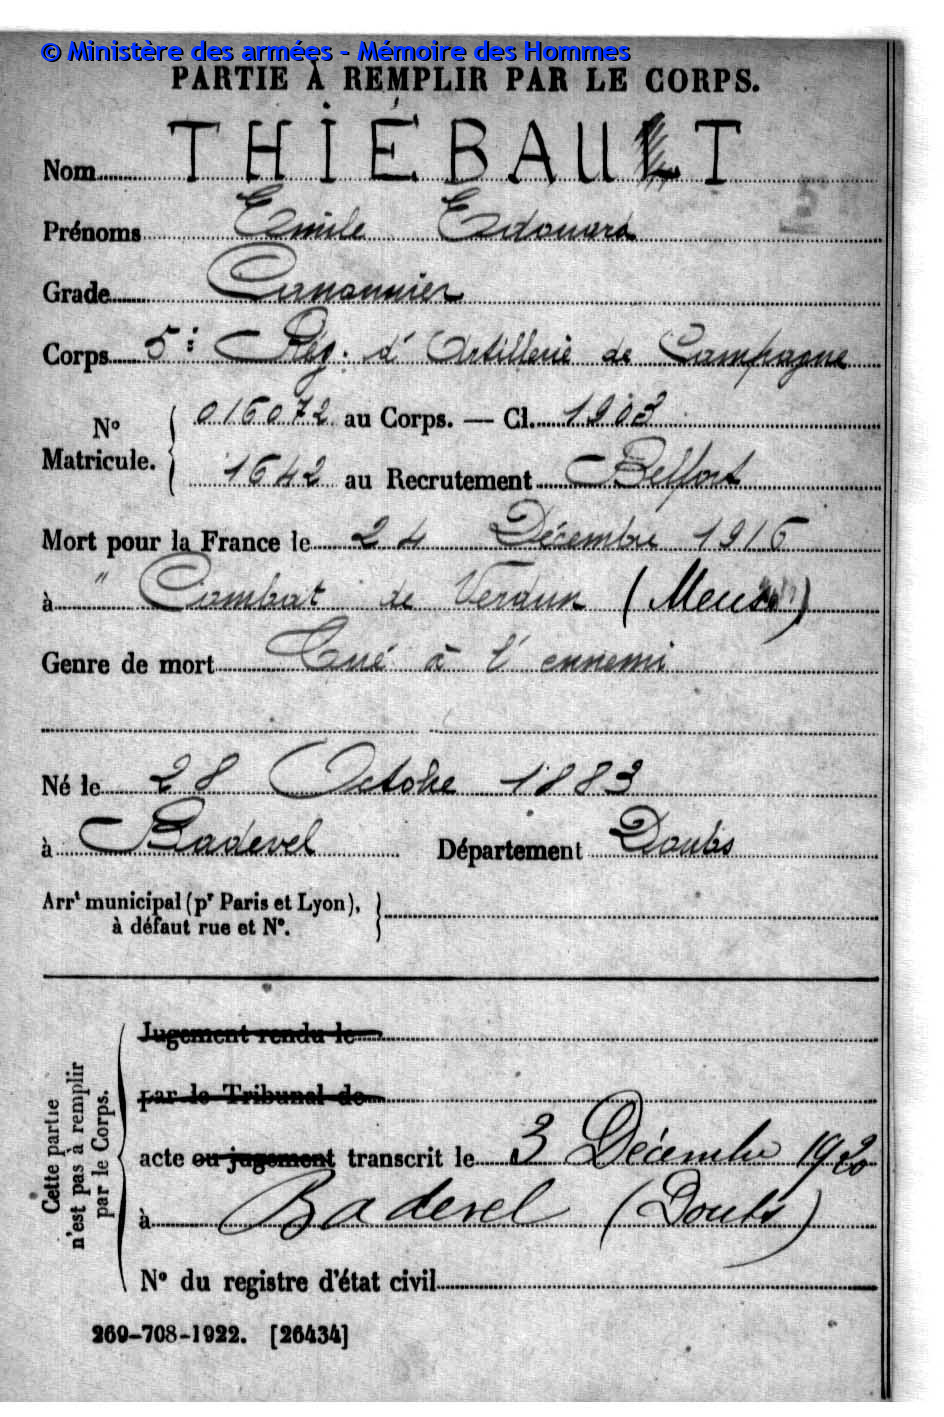 © Ministère des armées - Mémoire des Hommes
PARTIE À REMPLIR PAR LE CORPS.
Nom THIÉBAULT
Prénoms Emile Edouard
Grade Canonnier
Corps 5e Rég. d'Artillerie de Campagne
No Matricule. { 016072 au Corps. — Cl. 1903
1642 au Recrutement Belfort
Mort pour la France le 24 Décembre 1916
à " Combat de Verdun (Meuse)
Genre de mort Tué à l'ennemi
Né le 28 Octobre 1883
à Badevel Département Doubs
Arrt municipal (pr Paris et Lyon),
à défaut rue et No.
Cette partie
n'est pas à remplir
par le Corps.
Jugement rendu le
par le Tribunal de
acte ou jugement transcrit le 3 Décembre 1920
à Badevel (Doubs)
No du registre d'état civil
269-708-1922. [26434]